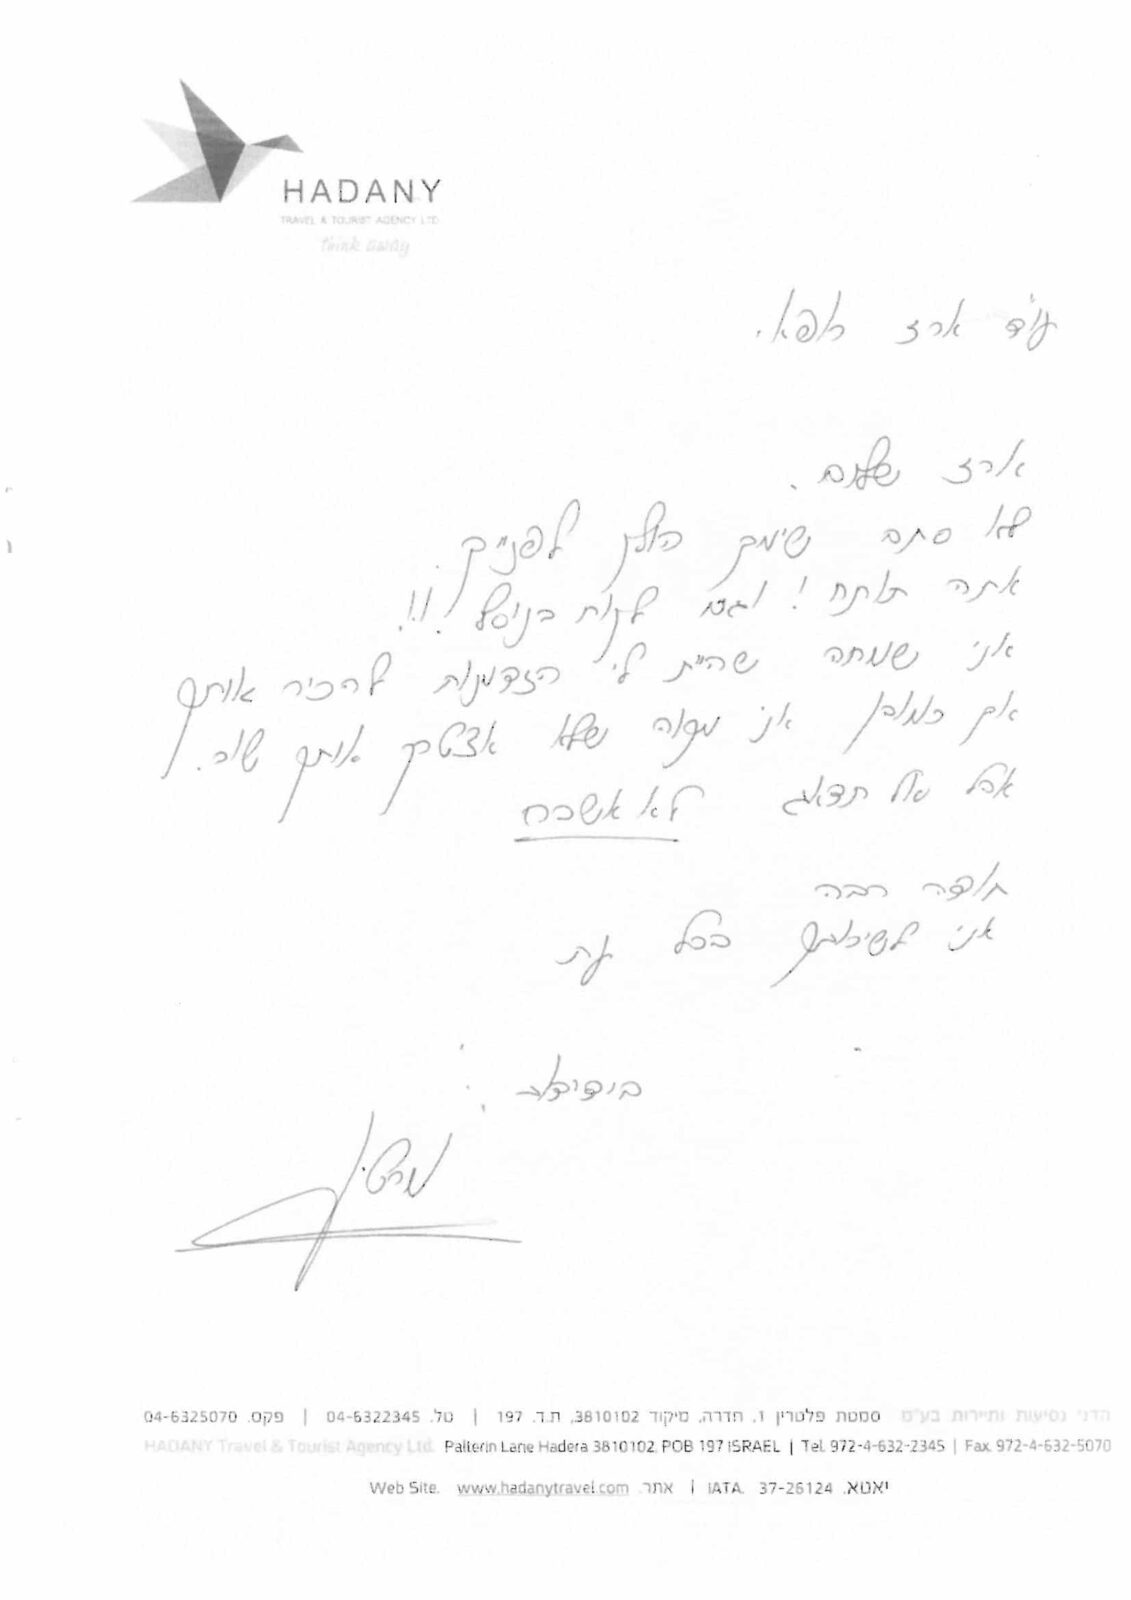 HADANY
TRAVEL & TOURIST AGENCY LTD
think away
עו"ד ארז רפא.
ארז שלום.
לא סתם שימך הולך לפנייך.
אתה תותח! וגם לקות בנוסף!!!
אני שמחה שהיית לי הזדמנות להכיר אותך
אך כמובן אני מקווה שלא אצטרך אותך שוב.
אבל אל תדאג לא אשכח
תודה רבה
אני לשירותך בכל עת
בידידות
הדני נסיעות ותיירות בע"מ סמטת פלטרין 1, חדרה, מיקוד 3810102, ת.ד. 197 | טל. 04-6322345 | פקס. 04-6325070
HADANY Travel & Tourist Agency Ltd. Palterin Lane Hadera 3810102, POB 197 ISRAEL | Tel. 972-4-632-2345 | Fax. 972-4-632-5070
Web Site. www.hadanytravel.com אתר. | IATA. 37-26124 יאטא.